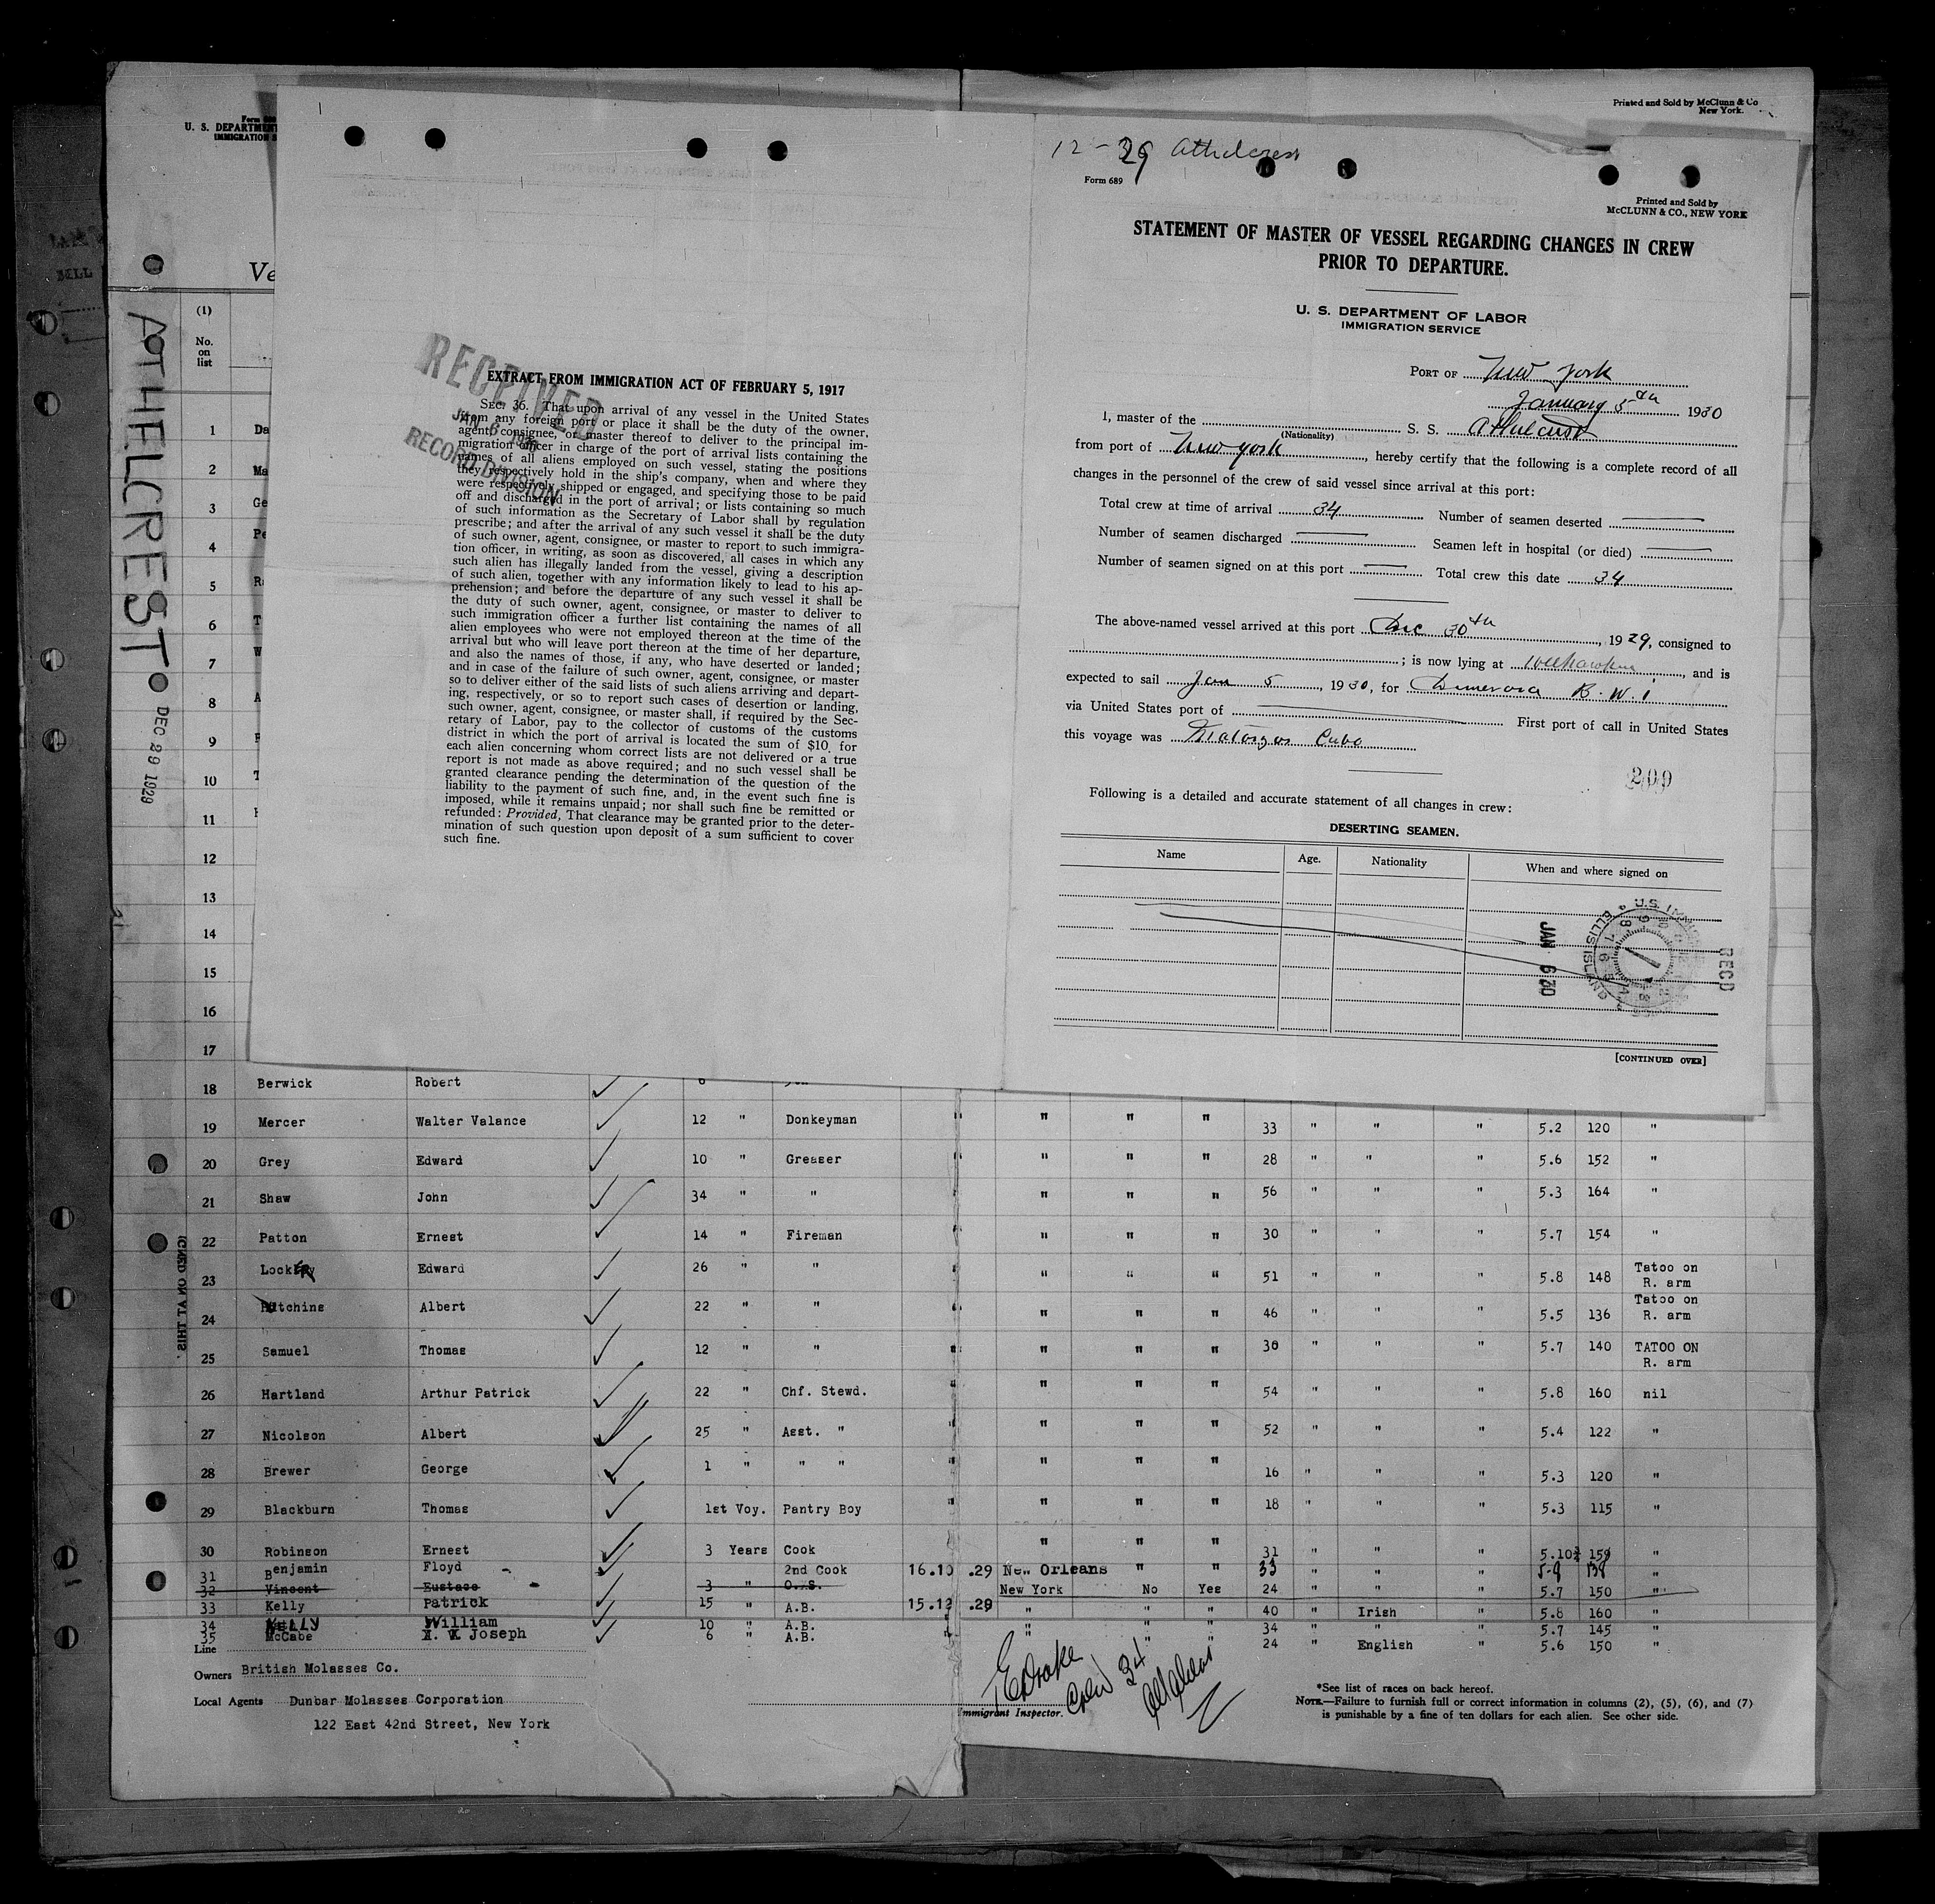 Printed and Sold by McClunn & Co
New York.
U. S. DEPARTMENT
IMMIGRATION S
Ve
ATHELCREST
DEC 29 1929
(1)
No.
on
list
1 Da
2 Ma
3 Ge
4 Pe
5 Ra
6 T
7 W
8 A
9
10 T
11
12
13
14
15
16
17
RECEIVED
JAN 6 1930
RECORD DIVISION
EXTRACT FROM IMMIGRATION ACT OF FEBRUARY 5, 1917
SEC. 36. That upon arrival of any vessel in the United States
from any foreign port or place it shall be the duty of the owner,
agent, consignee, or master thereof to deliver to the principal im-
migration officer in charge of the port of arrival lists containing the
names of all aliens employed on such vessel, stating the positions
they respectively hold in the ship's company, when and where they
were respectively shipped or engaged, and specifying those to be paid
off and discharged in the port of arrival; or lists containing so much
of such information as the Secretary of Labor shall by regulation
prescribe; and after the arrival of any such vessel it shall be the duty
of such owner, agent, consignee, or master to report to such immigra-
tion officer, in writing, as soon as discovered, all cases in which any
such alien has illegally landed from the vessel, giving a description
of such alien, together with any information likely to lead to his ap-
prehension; and before the departure of any such vessel it shall be
the duty of such owner, agent, consignee, or master to deliver to
such immigration officer a further list containing the names of all
alien employees who were not employed thereon at the time of the
arrival but who will leave port thereon at the time of her departure,
and also the names of those, if any, who have deserted or landed;
and in case of the failure of such owner, agent, consignee, or master
so to deliver either of the said lists of such aliens arriving and depart-
ing, respectively, or so to report such cases of desertion or landing,
such owner, agent, consignee, or master shall, if required by the Sec-
retary of Labor, pay to the collector of customs of the customs
district in which the port of arrival is located the sum of $10 for
each alien concerning whom correct lists are not delivered or a true
report is not made as above required; and no such vessel shall be
granted clearance pending the determination of the question of the
liability to the payment of such fine, and, in the event such fine is
imposed, while it remains unpaid; nor shall such fine be remitted or
refunded: Provided, That clearance may be granted prior to the deter-
mination of such question upon deposit of a sum sufficient to cover
such fine.
12-29 Athelcrest
Form 689
Printed and Sold by
McCLUNN & CO., NEW YORK
STATEMENT OF MASTER OF VESSEL REGARDING CHANGES IN CREW
PRIOR TO DEPARTURE.
U. S. DEPARTMENT OF LABOR
IMMIGRATION SERVICE
PORT OF New York
January 5th 1930
I, master of the S. S. Athelcrest
(Nationality)
from port of New York, hereby certify that the following is a complete record of all
changes in the personnel of the crew of said vessel since arrival at this port:
Total crew at time of arrival 34 Number of seamen deserted
Number of seamen discharged Seamen left in hospital (or died)
Number of seamen signed on at this port Total crew this date 34
The above-named vessel arrived at this port Dec 30th, 1929, consigned to
; is now lying at Weehawken, and is
expected to sail Jan 5, 1930, for Demerara B.W.I
via United States port of First port of call in United States
this voyage was Matanzas Cuba
209
Following is a detailed and accurate statement of all changes in crew:
DESERTING SEAMEN.
Name Age. Nationality When and where signed on
JAN 6 30
RECD
ELLIS ISLAND
[CONTINUED OVER]
18 Berwick Robert 6
19 Mercer Walter Valance 12 " Donkeyman " " " " 33 " " " 5.2 120 "
20 Grey Edward 10 " Greaser " " " " 28 " " " 5.6 152 "
21 Shaw John 34 " " " " " " 56 " " " 5.3 164 "
22 Patton Ernest 14 " Fireman " " " " 30 " " " 5.7 154 "
23 Edward 26 " " " " " " 51 " " " 5.8 148 Tatoo on R. arm
24 Hutchins Albert 22 " " " " " " 46 " " " 5.5 136 Tatoo on R. arm
25 Samuel Thomas 12 " " " " " " 30 " " " 5.7 140 TATOO ON R. arm
26 Hartland Arthur Patrick 22 " Chf. Stewd. " " " " 54 " " " 5.8 160 nil
27 Nicolson Albert 25 " Asst. " " " " " 52 " " " 5.4 122 "
28 Brewer George 1 " " " " " " " 16 " " " 5.3 120 "
29 Blackburn Thomas 1st Voy. Pantry Boy " " " " 18 " " " 5.3 115 "
30 Robinson Ernest 3 Years Cook " " " 31 " " " 5.10½ 159 "
31 Benjamin Floyd 2nd Cook 16.10 .29 New Orleans " " 33 " " " 5-9 138 "
32 Vincent Eustace 3 " O.S. New York No Yes 24 " " " 5.7 150 "
33 Kelly Patrick 15 " A.B. 15.12 .29 " " " 40 " Irish " 5.8 160 "
34 KELLY William 10 " A.B. " " " " 34 " " " 5.7 145 "
35 McCabe Joseph 6 " A.B. " " " " 24 " English " 5.6 150 "
Line
Owners British Molasses Co.
Local Agents Dunbar Molasses Corporation
122 East 42nd Street, New York
E Drake
Crew 34
all aliens
Immigrant Inspector.
*See list of races on back hereof.
NOTE.—Failure to furnish full or correct information in columns (2), (5), (6), and (7)
is punishable by a fine of ten dollars for each alien. See other side.